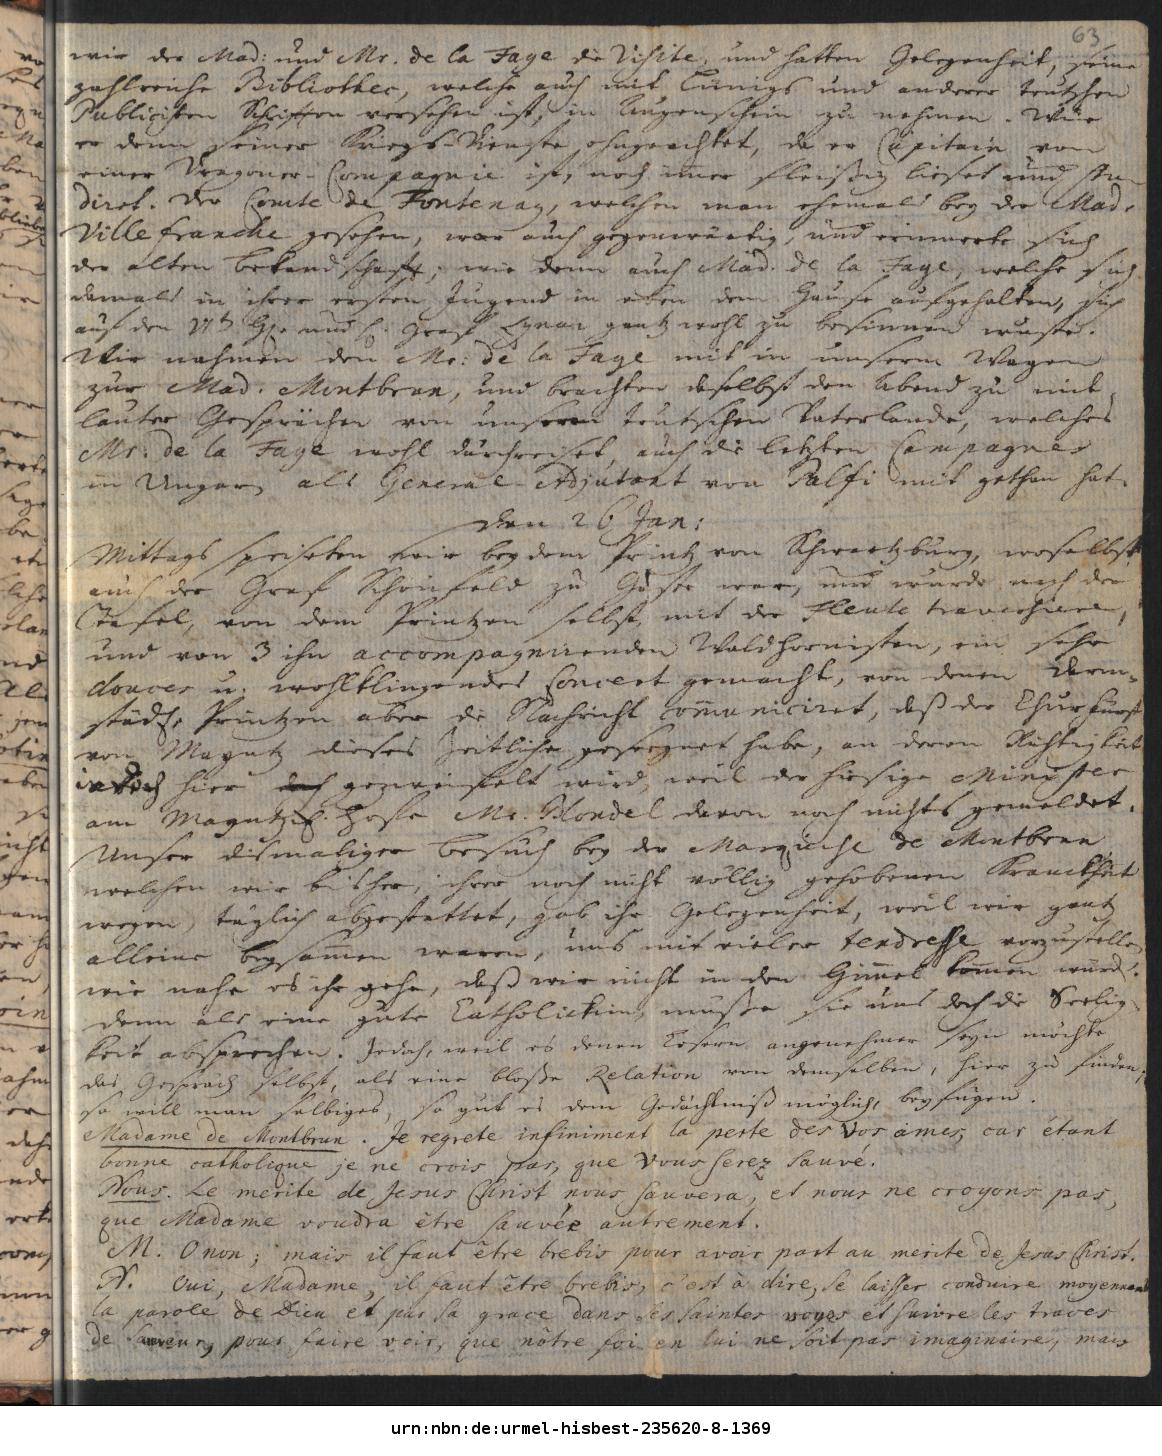 63
wir der Mad: und Mr. de la Fage die Visite, und hatten Gelegenheit, seine
zahlreiche Bibliothec, welche auch mit Lunigs und anderer teutschen
Publicisten Schrifften versehen ist, in Augenschein zu nehmen. Wie
er denn seiner Kriegs-Dienste ohngeachtet, da er Capitain von
einer Dragoner-Compagnie ist, noch imer fleißig lieset und stu-
diret. Der Comte de Fontenay, welchen man ehemals bey der Mad.
Villefranche gesehen, war auch gegenwärtig, und erinnerte sich
der alten bekandschafft, wie denn auch Mad. de la Fage, welche sich
damals in ihrer ersten Jugend in eben dem Hause aufgehalten, sich
auf den und H. Graf Lynar gantz wohl zu besinnen wuste.
Wir nahmen den Mr: de la Fage mit in unserm Wagen
zur Mad. Montbrun, und brachten daselbst den Abend zu mit
lauter Gesprächen von unserm teutschen Vaterlande, welches
Mr: de la Fage wohl durchreiset, auch die letzten Campagnes
in Ungarn als General-Adjutant von Palfi mit gethan hat.
den 26 Jan:
Mittags speiseten wir bey dem Printz von Schwartzburg, woselbst
auch der Graf Schönfeld zu Gaste war, und wurde nach der
Tafel, von dem Printzen selbst, mit der Fleute traversiere,
und von 3 ihn accompagnirenden Waldhornisten, ein sehr
douces u. wohlklingendes Concert gemacht, von denen Darm-
städt. Printzen aber die Nachricht comuniciret, daß der Churfürst
von Mayntz dieses Zeitliche gesegnet habe, an deren Richtigkeit
jedoch hier gezweifelt wird, weil der hiesige Minister
am Mayntz. Hofe Mr. Blondel davon noch nichts gemeldet.
Unser dismaliger besuch bey der Marquise de Montbrun
welchen wir bisher, ihrer noch nicht völlig gehobenen Kranckheit
wegen, täglich abgestattet, gab ihr Gelegenheit, weil wir gantz
alleine beysamen waren, uns mit vieler tendresse vorzustellen
wie nahe es ihr gehe, daß wir nicht in den Himel komen würd.
denn als eine gute Catholickin, müsse sie uns doch die Seelig-
keit absprechen. Jedoch, weil es denen Lesern angenehmer seyn möchte
das Gespräch selbst, als eine bloße Relation von demselben, hier zu finden,
so will man selbiges, so gut es dem Gedächtniß möglich, beyfügen.
Madame de Montbrun. Je regrete infiniment la perte des vos ames, car étant
bonne catholique je ne crois pas, que vous serez sauvé.
Nous. Le merite de Jesus Christ nous sauvera, et nous ne croyons pas,
que Madame voudra être sauvée autrement.
M. O non; mais il faut être brebis pour avoir part au merite de Jesus Christ.
N. Oui, Madame, il faut être brebis, c'est à dire, se laisser conduire moyennant
la parole de Dieu et par sa grace dans ses saintes voyes et suivre les traces
de Sauveur, pour faire voir, que nôtre foi en lui ne soit pas imaginaire, mais
urn:nbn:de:urmel-hisbest-235620-8-1369